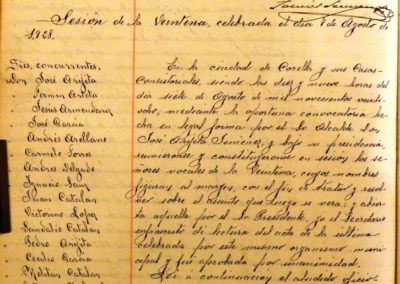 Sesión de la Veintena, celebrada el día 7 de Agosto de
1928.
Sres. concurrentes.
Don José Arigita
Fermin Arieta
Jesus Armendariz
José Garcia
Andrés Arellano
Carmelo
Andres Delgado
Ignacio Sanz
Juan Catalan
Victorino Lopez
Sandalio Catalan
Pedro Arigita
Cecilio Garcia
Meliton Catalan
En la ciudad de Corella y sus Casas-
Consistoriales, siendo las diez y nueve horas del
dia siete de Agosto de mil novecientos veinti-
ocho, mediante la oportuna convocatoria he-
cha en legal forma por el Sr Alcalde Don
José Arigita Jimenez, y bajo su presidencia,
reunieronse y constituyeronse en sesion los se-
ñores vocales de la Veintena, cuyos nombres
figuran al margen, con el fin de tratar y resol-
ver sobre el asunto que luego se verá, y abier-
ta aquella por el Sr Presidente, yo el Secretario
infrascrito di lectura del acta de la última
celebrada por este mismo organismo muni-
cipal y fué aprobada por unanimidad.
Leí á continuación el aludido oficio